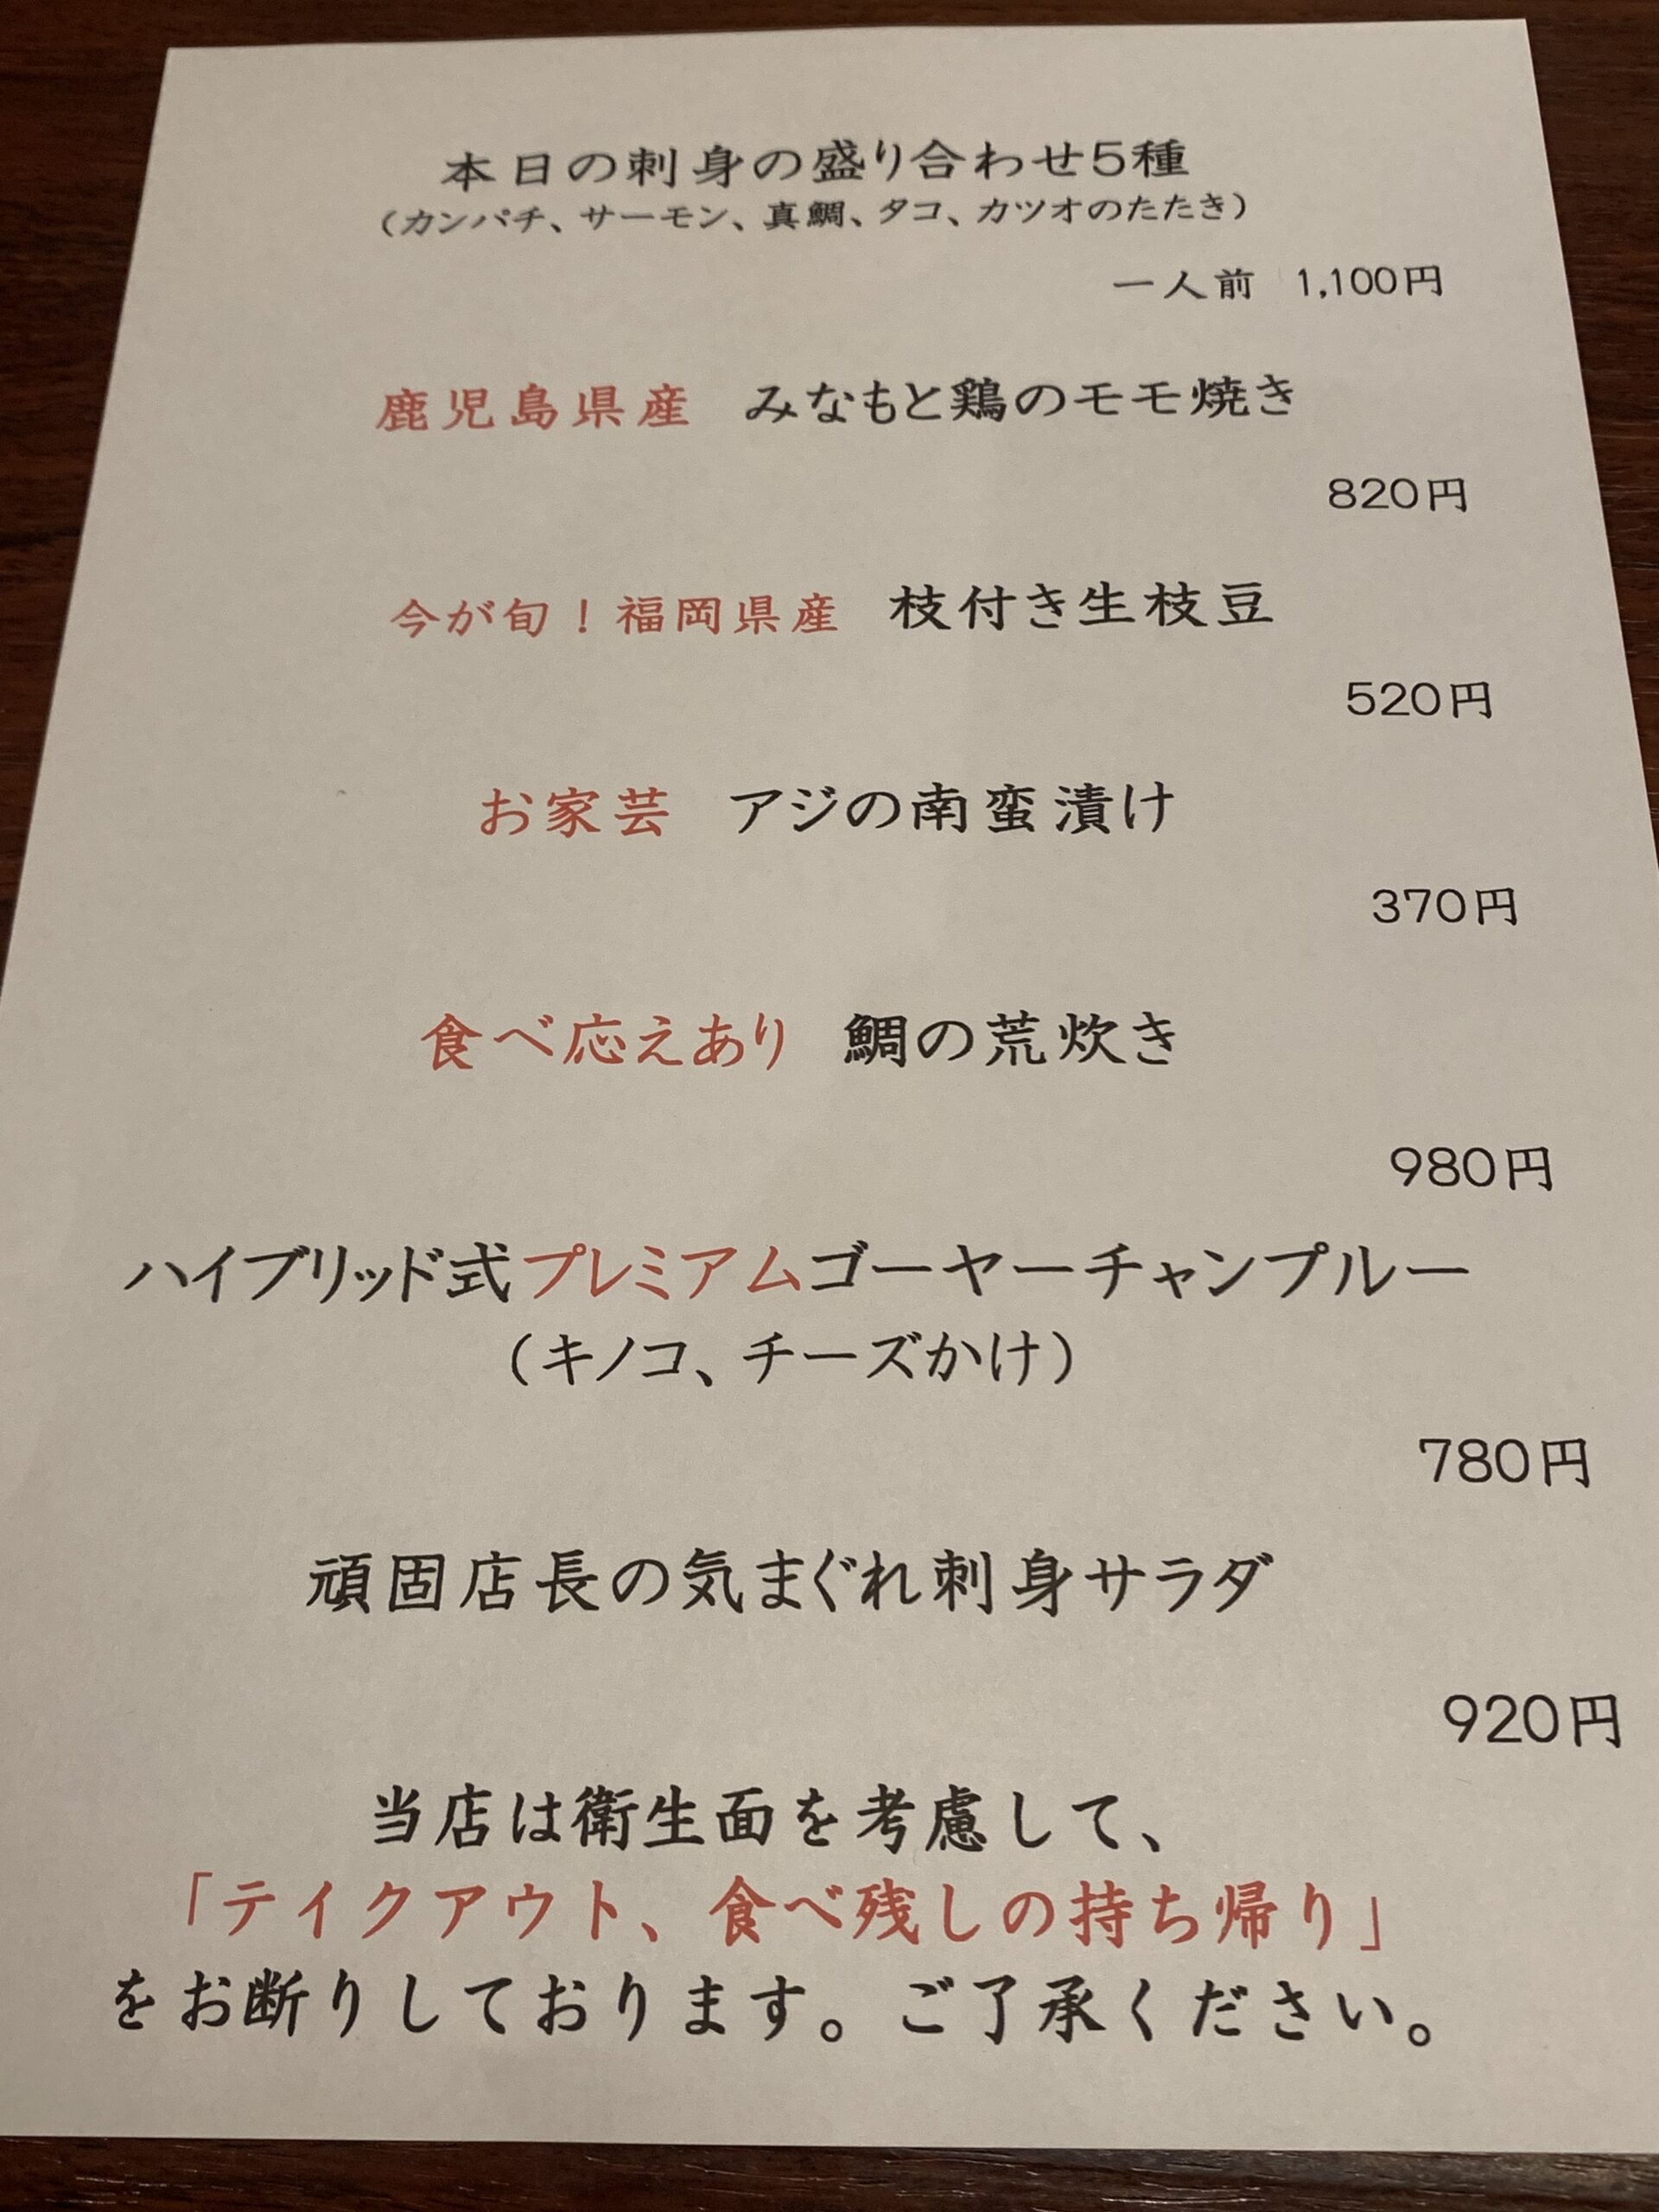 本日の刺身の盛り合わせ5種
(カンパチ、サーモン、真鯛、タコ、カツオのたたき)
一人前 1,100円
鹿児島県産 みなもと鶏のモモ焼き
820円
今が旬！福岡県産 枝付き生枝豆
520円
お家芸 アジの南蛮漬け
370円
食べ応えあり 鯛の荒炊き
980円
ハイブリッド式プレミアムゴーヤーチャンプルー
(キノコ、チーズかけ)
780円
頑固店長の気まぐれ刺身サラダ
920円
当店は衛生面を考慮して、
「テイクアウト、食べ残しの持ち帰り」
をお断りしております。ご了承ください。